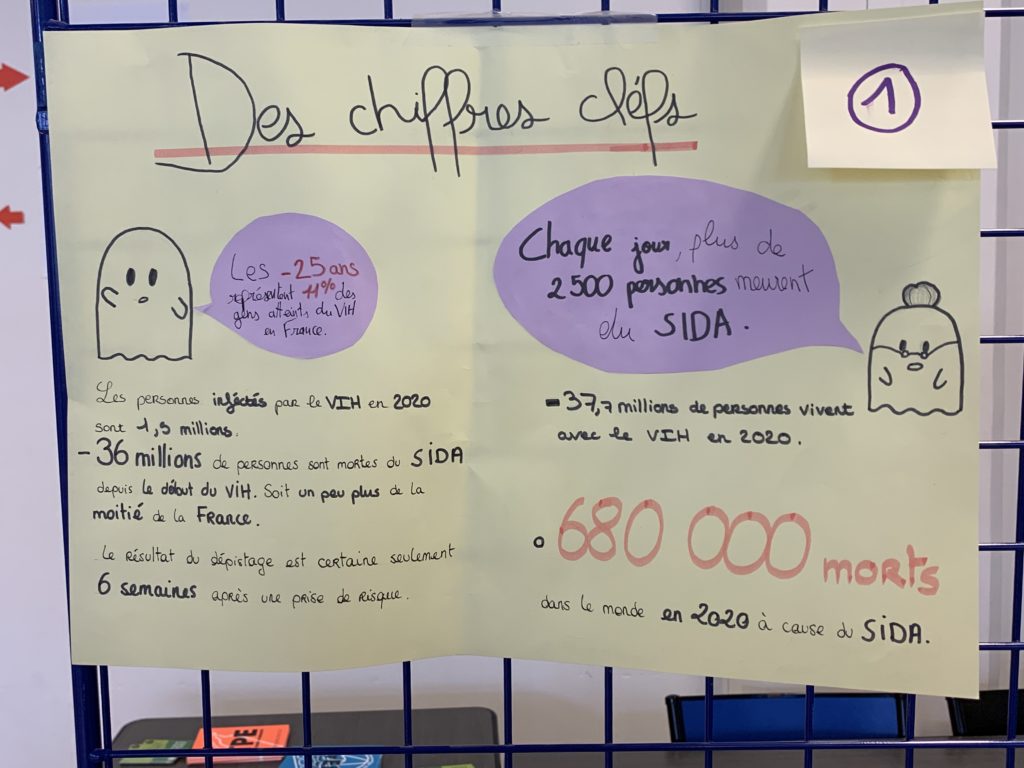 Des chiffres cléfs
1
Les -25 ans
représentent 11% des
gens atteints du VIH
en France.
Chaque jour, plus de
2500 personnes meurent
du SIDA.
Les personnes inféctés par le VIH en 2020
sont 1,5 millions.
- 36 millions de personnes sont mortes du SIDA
depuis le début du VIH. Soit un peu plus de la
moitié de la France.
Le résultat du dépistage est certaine seulement
6 semaines après une prise de risque.
- 37,7 millions de personnes vivent
avec le VIH en 2020.
680 000 morts
dans le monde en 2020 à cause du SIDA.